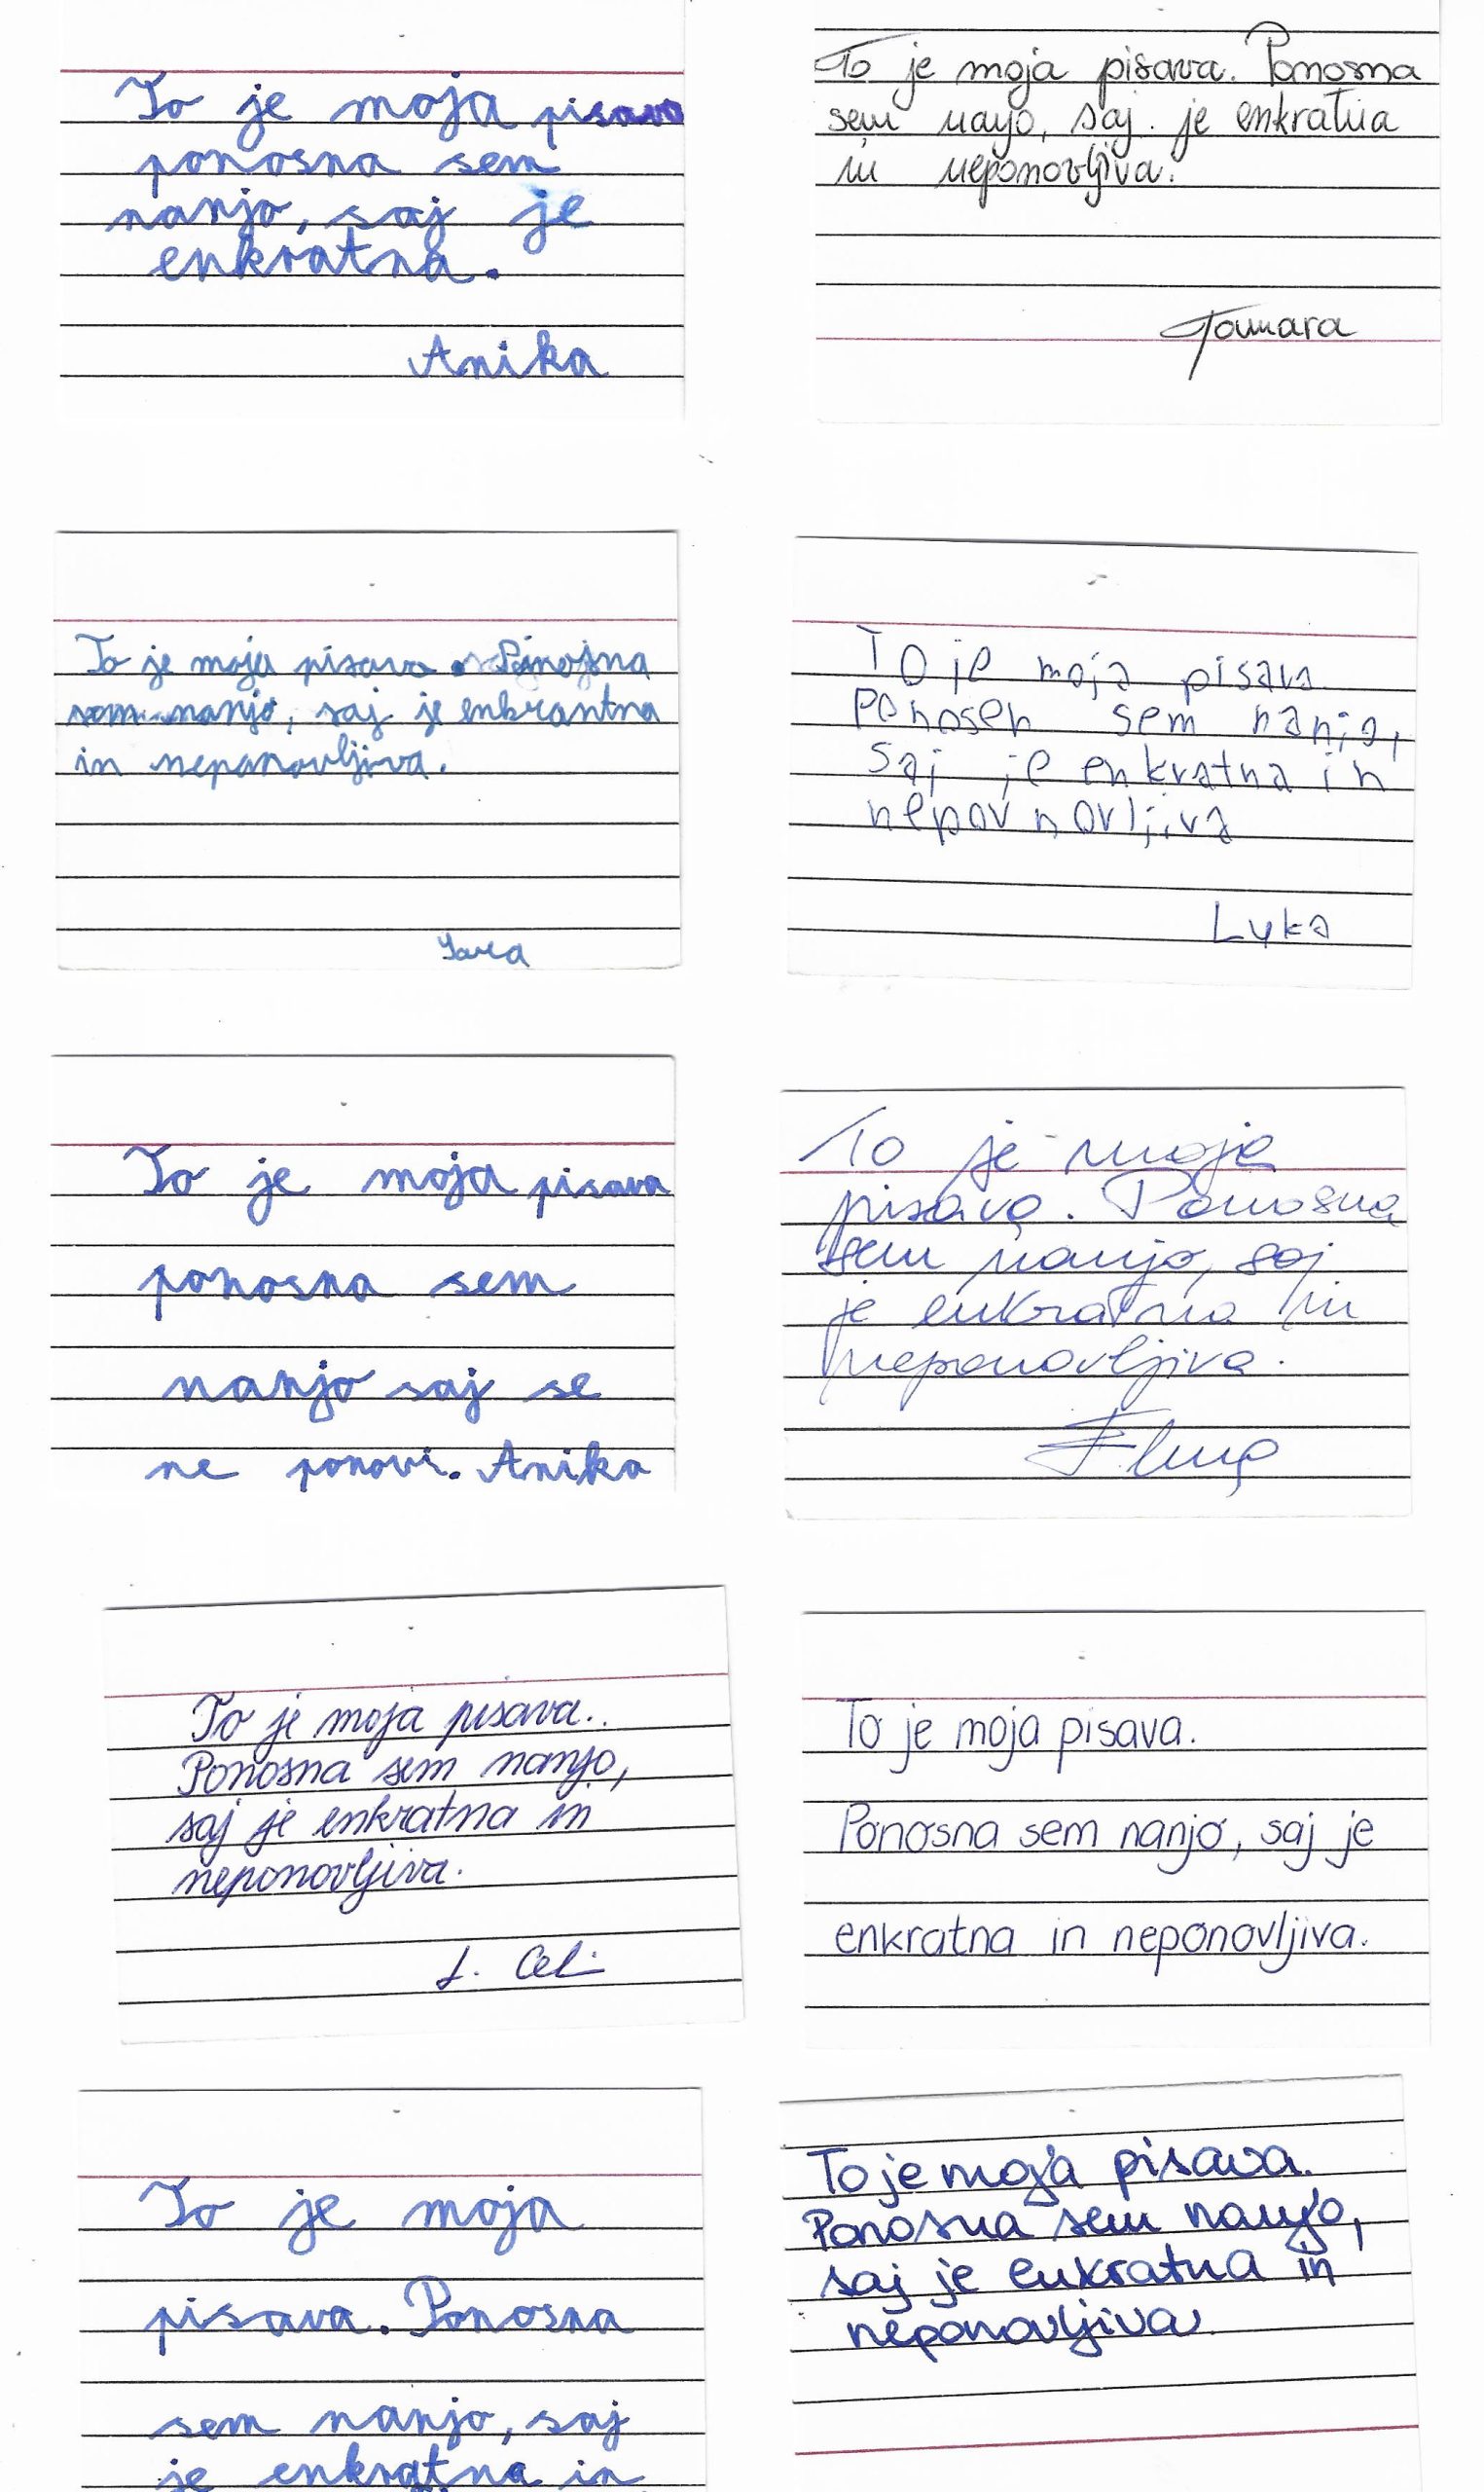 To je moja pisava
ponosna sem
nanjo, saj je
enkratna.
Anika
To je moja pisava. Ponosna
sem nanjo, saj je enkratna
in neponovljiva.
Tamara
To je moja pisava.
sem nanjo, saj je enkrantna
in neponovljiva.
To je moja pisava
Ponosen sem nanjo,
saj je enkratna in
nepovnovljiva
Luka
To je moja pisava
ponosna sem
nanjo saj se
ne ponovi. Anika
To je moja
pisava. Ponosna
sem nanjo, saj
je enkratna in
neponovljiva.
To je moja pisava..
Ponosna sem nanjo,
saj je enkratna in
neponovljiva.
To je moja pisava.
Ponosna sem nanjo, saj je
enkratna in neponovljiva.
To je moja
pisava. Ponosna
sem nanjo, saj
je enkratna in
To je moja pisava.
Ponosna sem nanjo,
saj je enkratna in
neponovljiva.